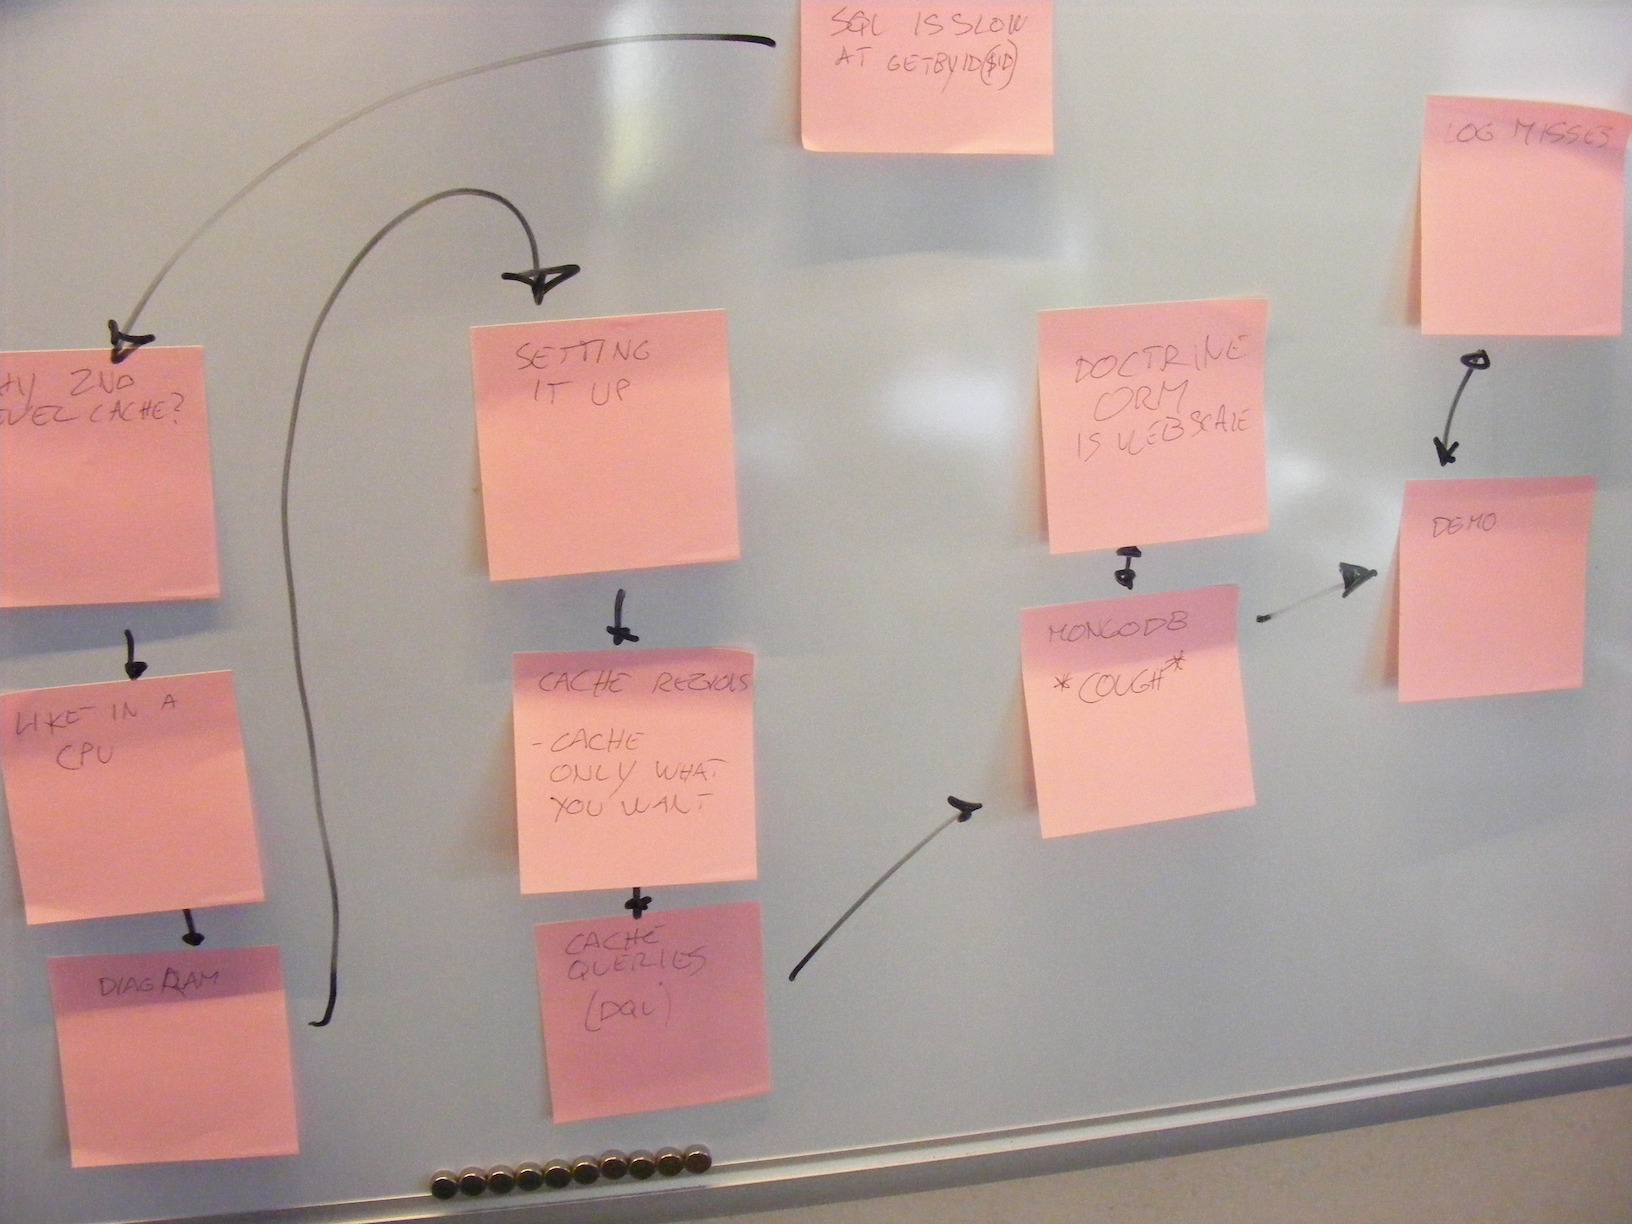 SQL IS SLOW
AT GETBYID($ID)
2ND
CACHE?
LIKE IN A
CPU
DIAGRAM
SETTING
IT UP
CACHE
- CACHE
ONLY WHAT
YOU WANT
CACHE
QUERIES
(DQL)
DOCTRINE
ORM
IS WEBSCALE
MONGODB
*COUGH*
LOG MISSES
DEMO